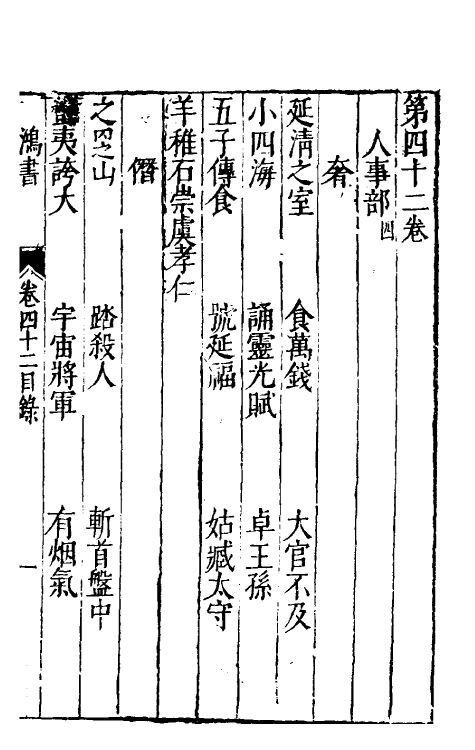 第四十二卷
人事部四
奢
延清之室 食萬錢 大官不及
小四海 誦靈光賦 卓王孫
五子傳食 號延福 姑臧太守
羊稚石崇虞孝仁
僭
之罘山 踏殺人 斬首盤中
夷誇大 宇宙將軍 有烟氣
鴻書 卷四十二目錄 一